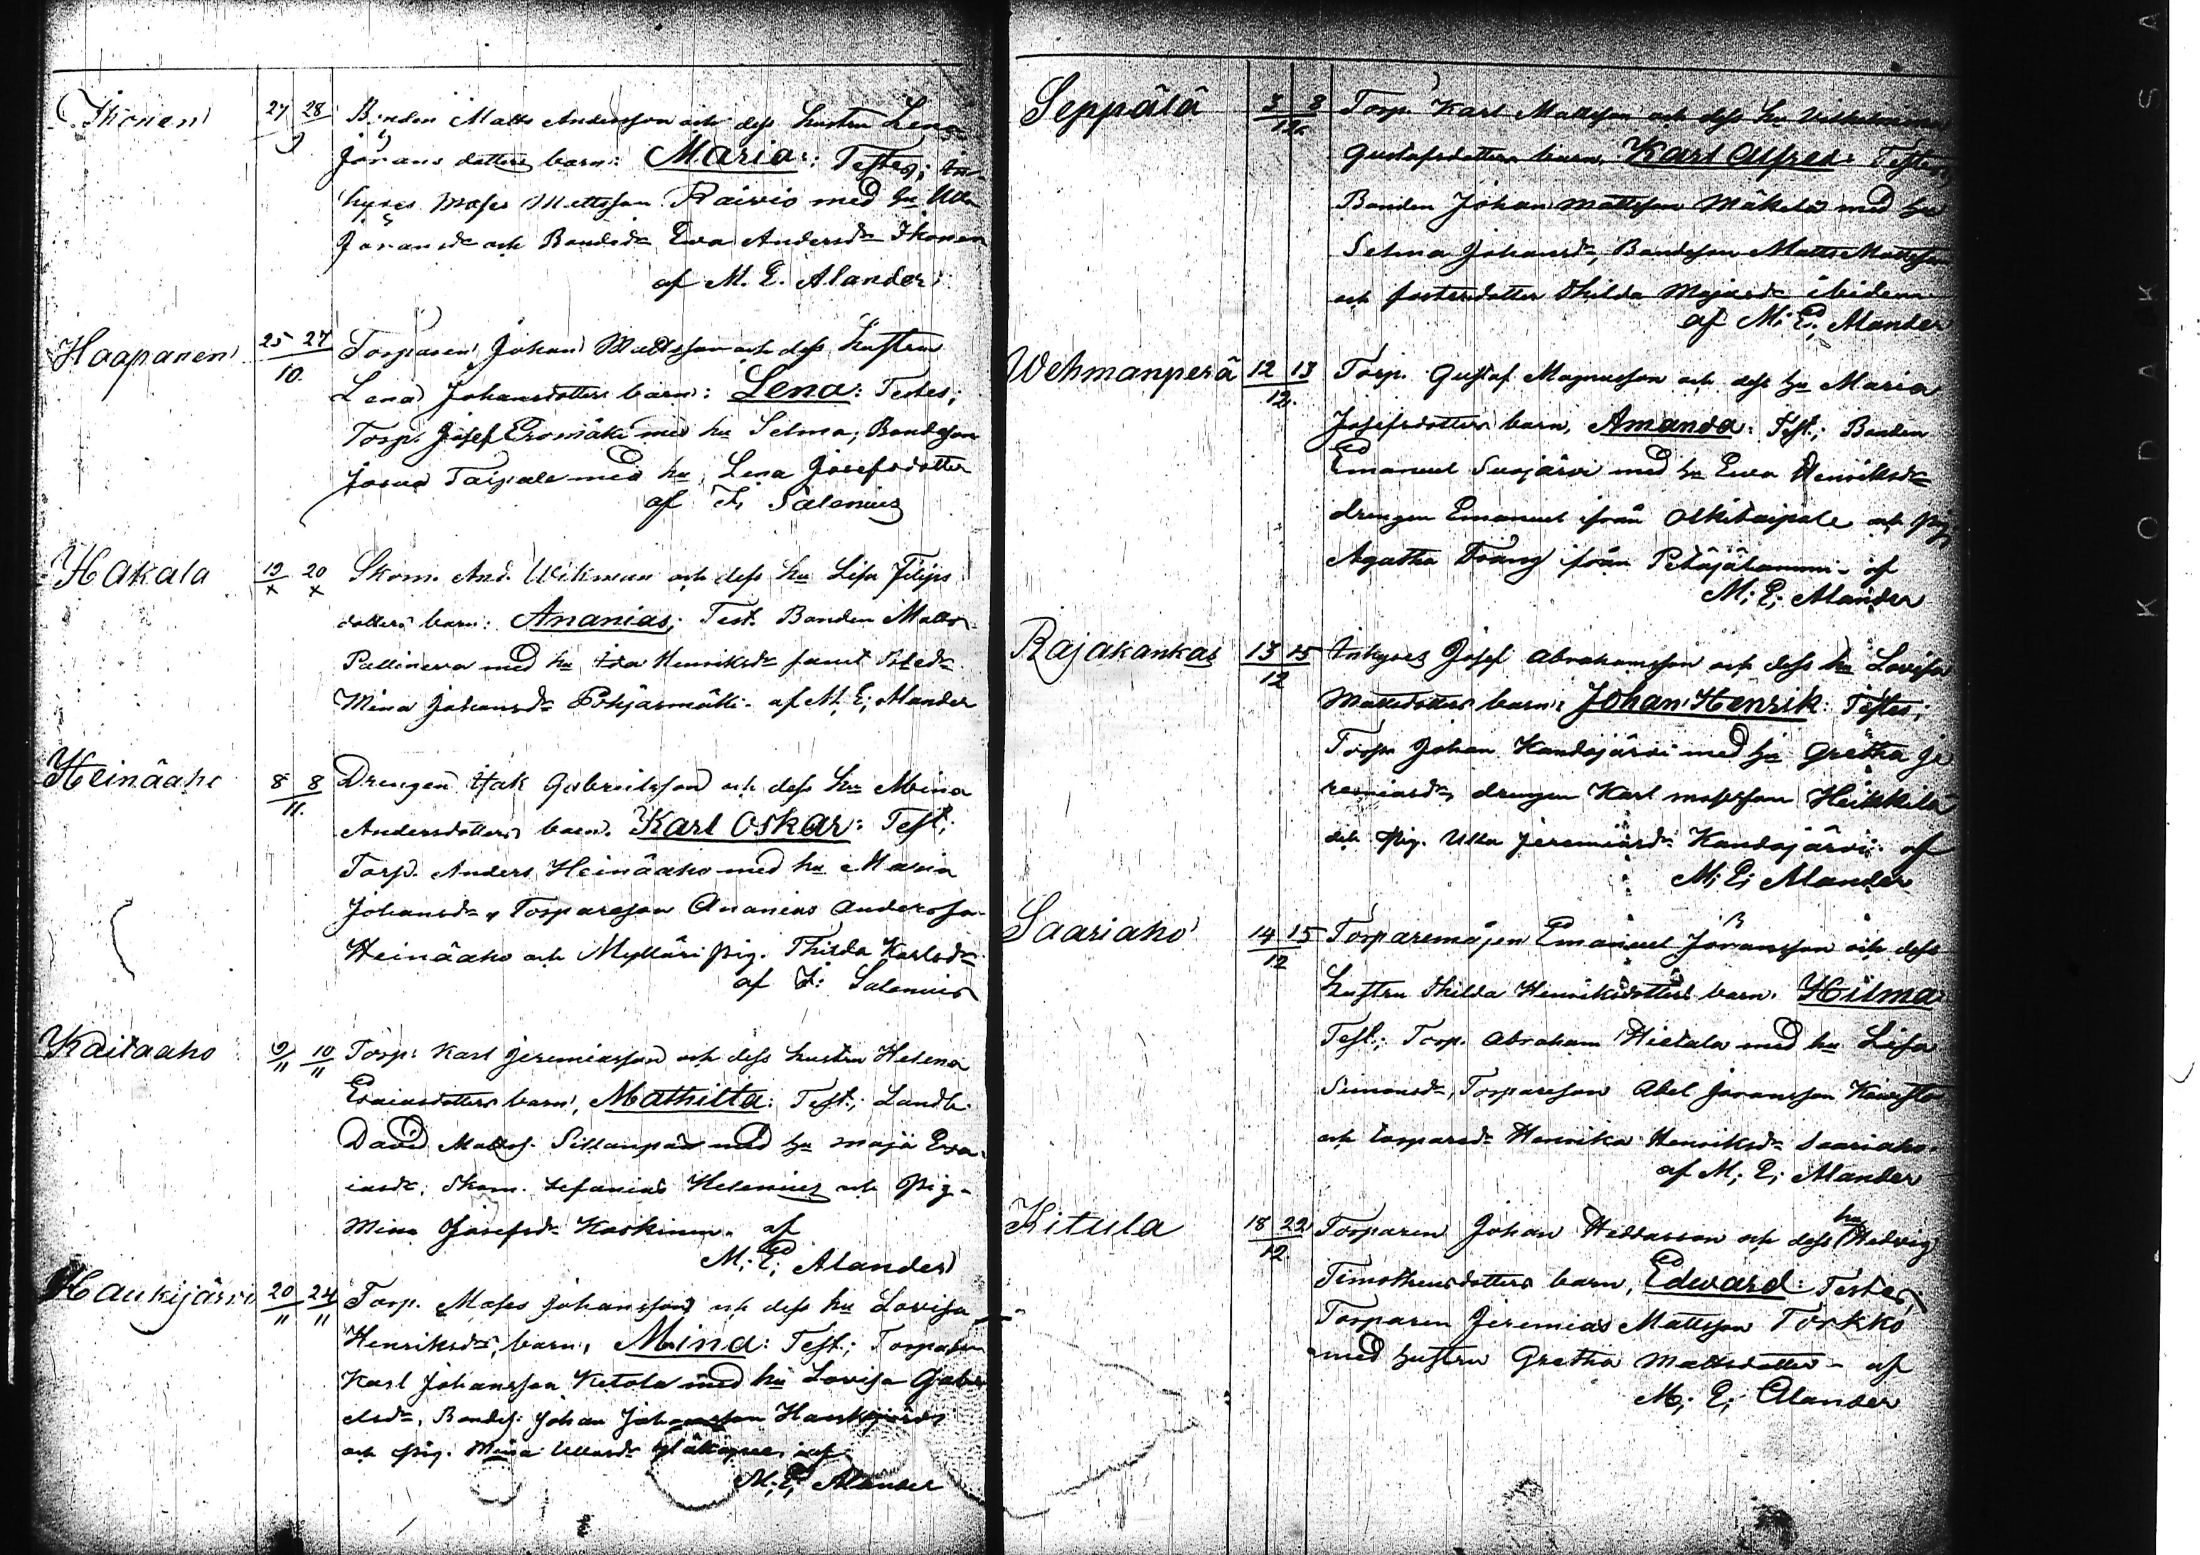 Ikonen 27 28 Bonden Matts Andersson och dess hustru Lena
9 Jöransdotters barn: Maria: Testes; in-
hyses Moses Mattsson Raivio med hu Ulla
Joransdr och Bondedr Eva Andersdr Ikonen
af M. E. Alander
Haapanen 25 27 Torparen Johan Mattsson och dess hustru
10. Lena Johansdotters barn: Lena: Testes;
Torp. Josef Eromäki med hu Selma, Bondeson
Josua Taipale med hu Lena Josefsdotter
af F. Salenius
Hakala 19 20 Skom. And. Wikman och dess hu Lisa Filips
x x dotters barn: Ananias; Test. Bonden Matts
med hu Ida Henriksdr samt
Mina Johansdr af M. E. Alander
Heinäaho 8 8 Drengen Isak Gabrielsson och dess hu Mina
11. Andersdotters barn. Karl Oskar: Test;
Torp. Anders Heinäaho med hu Maria
Johansdr, Torpareson Ananias Andersson
Heinäaho och Mylläri pig. Thilda Karlsdr
af F. Salenius
Kaitaaho 9 10 Torp: Karl Jeremiasson och dess hustru Helena
11 11 Esaiasdotters barn, Mathilta: Test; Landb.
David Matts. Sillanpää med hu Maja Esa-
iasdr, Skom. Sefanias Helenius och Pig.
Mina Josefsdr Koskinen. af
M. E. Alander
Haukijärvi 20 24 Torp. Moses Johansson och dess hu Lovisa
11 11 Henriksdr, barn, Mina: Test; Torparen
Karl Johansson Ketola med hu Lovisa Gabri
elsdr, Bondes. Johan Johansson Haukijärvi
och pig. Mina af
M. E. Alander
Seppälä 3 8 Torp. Karl Mattsson och dess hu Vilhelmina
12. Gustafsdotters barn, Karl Alfred: Testes;
Bonden Johan Mattsson Mäkelä med hu
Selma Johansdr, Bondeson Matts Mattsson
och fosterdotter Thilda Majasdr ibidem
af M. E. Alander
Wehmanperä 12 13 Torp. Gustaf Magnusson och dess hu Maria
12. Josefsdotters barn, Amanda: Test; Bonden
Emanuel Suojärvi med hu Eva Henriksdr
drengen Emanuel från Alkitaipale och pig.
Agatha från Petäjälammi - af
M. E. Alander
Rajakankas 13 15 Inhyses Josef Abrahamsson och dess hu Lovisa
12 Mattsdotters barn: Johan Henrik: Testes;
Torp. Johan Kandojärvi med hu Gretha Je
remiasdr, drengen Karl Mosesson Heikkilä
och Pig. Ulla Jeremiasdr Kandojärvi. af
M. E. Alander
Saariaho 14 15 Torparemågen Emanuel Joransson och dess
12 hustru Thilda Henriksdotters barn. Hilma
Test; Torp. Abraham Hietala med hu Lisa
Simonsdr, Torpareson Abel Joransson Kawisto
och torparedr Henrika Henriksdr Saariaho.
af M. E. Alander
Kitula 18 22 Torparen Johan och dess hu Hedvig
12. Timotheusdotters barn, Edward: Testes;
Torparen Jeremias Mattsson Torkko
med hustru Gretha Mattsdotter - af
M. E. Alander
KODAK SA